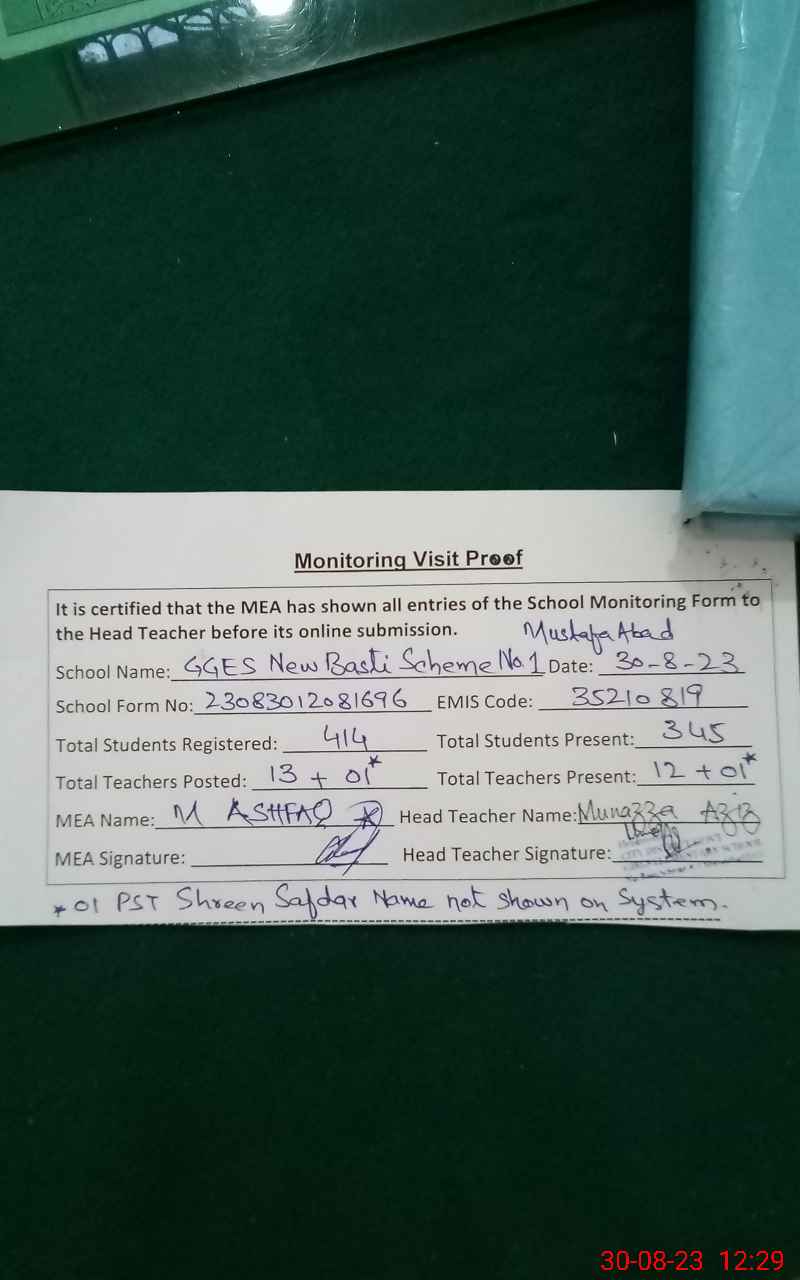 Monitoring Visit Proof
It is certified that the MEA has shown all entries of the School Monitoring Form to
the Head Teacher before its online submission. Mustafa Abad
School Name: GGES New Basti Scheme No.1 Date: 30-8-23
School Form No: 23083012081696 EMIS Code: 35210819
Total Students Registered: 414 Total Students Present: 345
Total Teachers Posted: 13 + 01* Total Teachers Present: 12 + 01*
MEA Name: M ASHFAQ Head Teacher Name: Munazza Aziz
MEA Signature: Head Teacher Signature:
* 01 PST Shreen Safdar Name not shown on System.
30-08-23 12:29